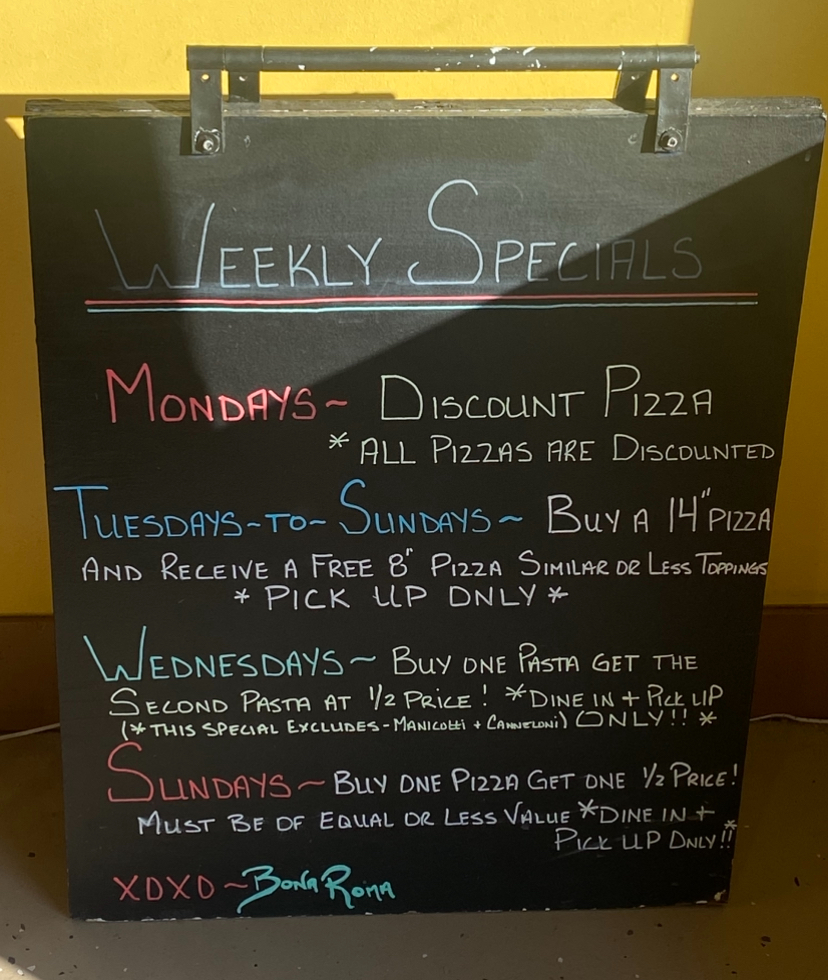 WEEKLY SPECIALS
MONDAYS~ DISCOUNT PIZZA
* ALL PIZZAS ARE DISCOUNTED
TUESDAYS-TO-SUNDAYS~ BUY A 14" PIZZA
AND RECEIVE A FREE 8" PIZZA SIMILAR OR LESS TOPPINGS
* PICK UP ONLY *
WEDNESDAYS~ BUY ONE PASTA GET THE
SECOND PASTA AT 1/2 PRICE! *DINE IN + PICK UP
(* THIS SPECIAL EXCLUDES - MANICOTTI + CANNELONI) ONLY!! *
SUNDAYS~ BUY ONE PIZZA GET ONE 1/2 PRICE!
MUST BE OF EQUAL OR LESS VALUE *DINE IN +
PICK UP ONLY!!*
XOXO~BONA ROMA